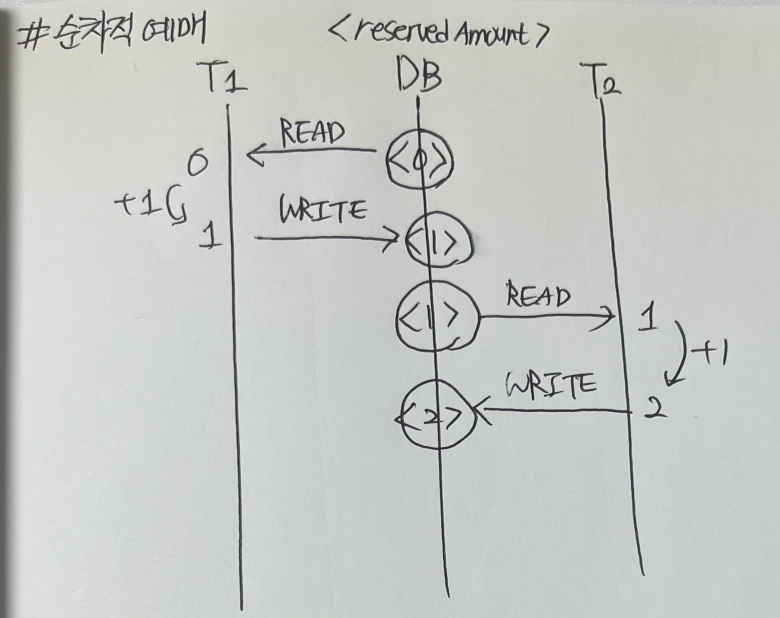 #순차적 예매 <reserved Amount>
T1 DB T2
READ
0 <0>
+1 WRITE
1 <1>
<1> READ 1
+1
WRITE
<2> 2